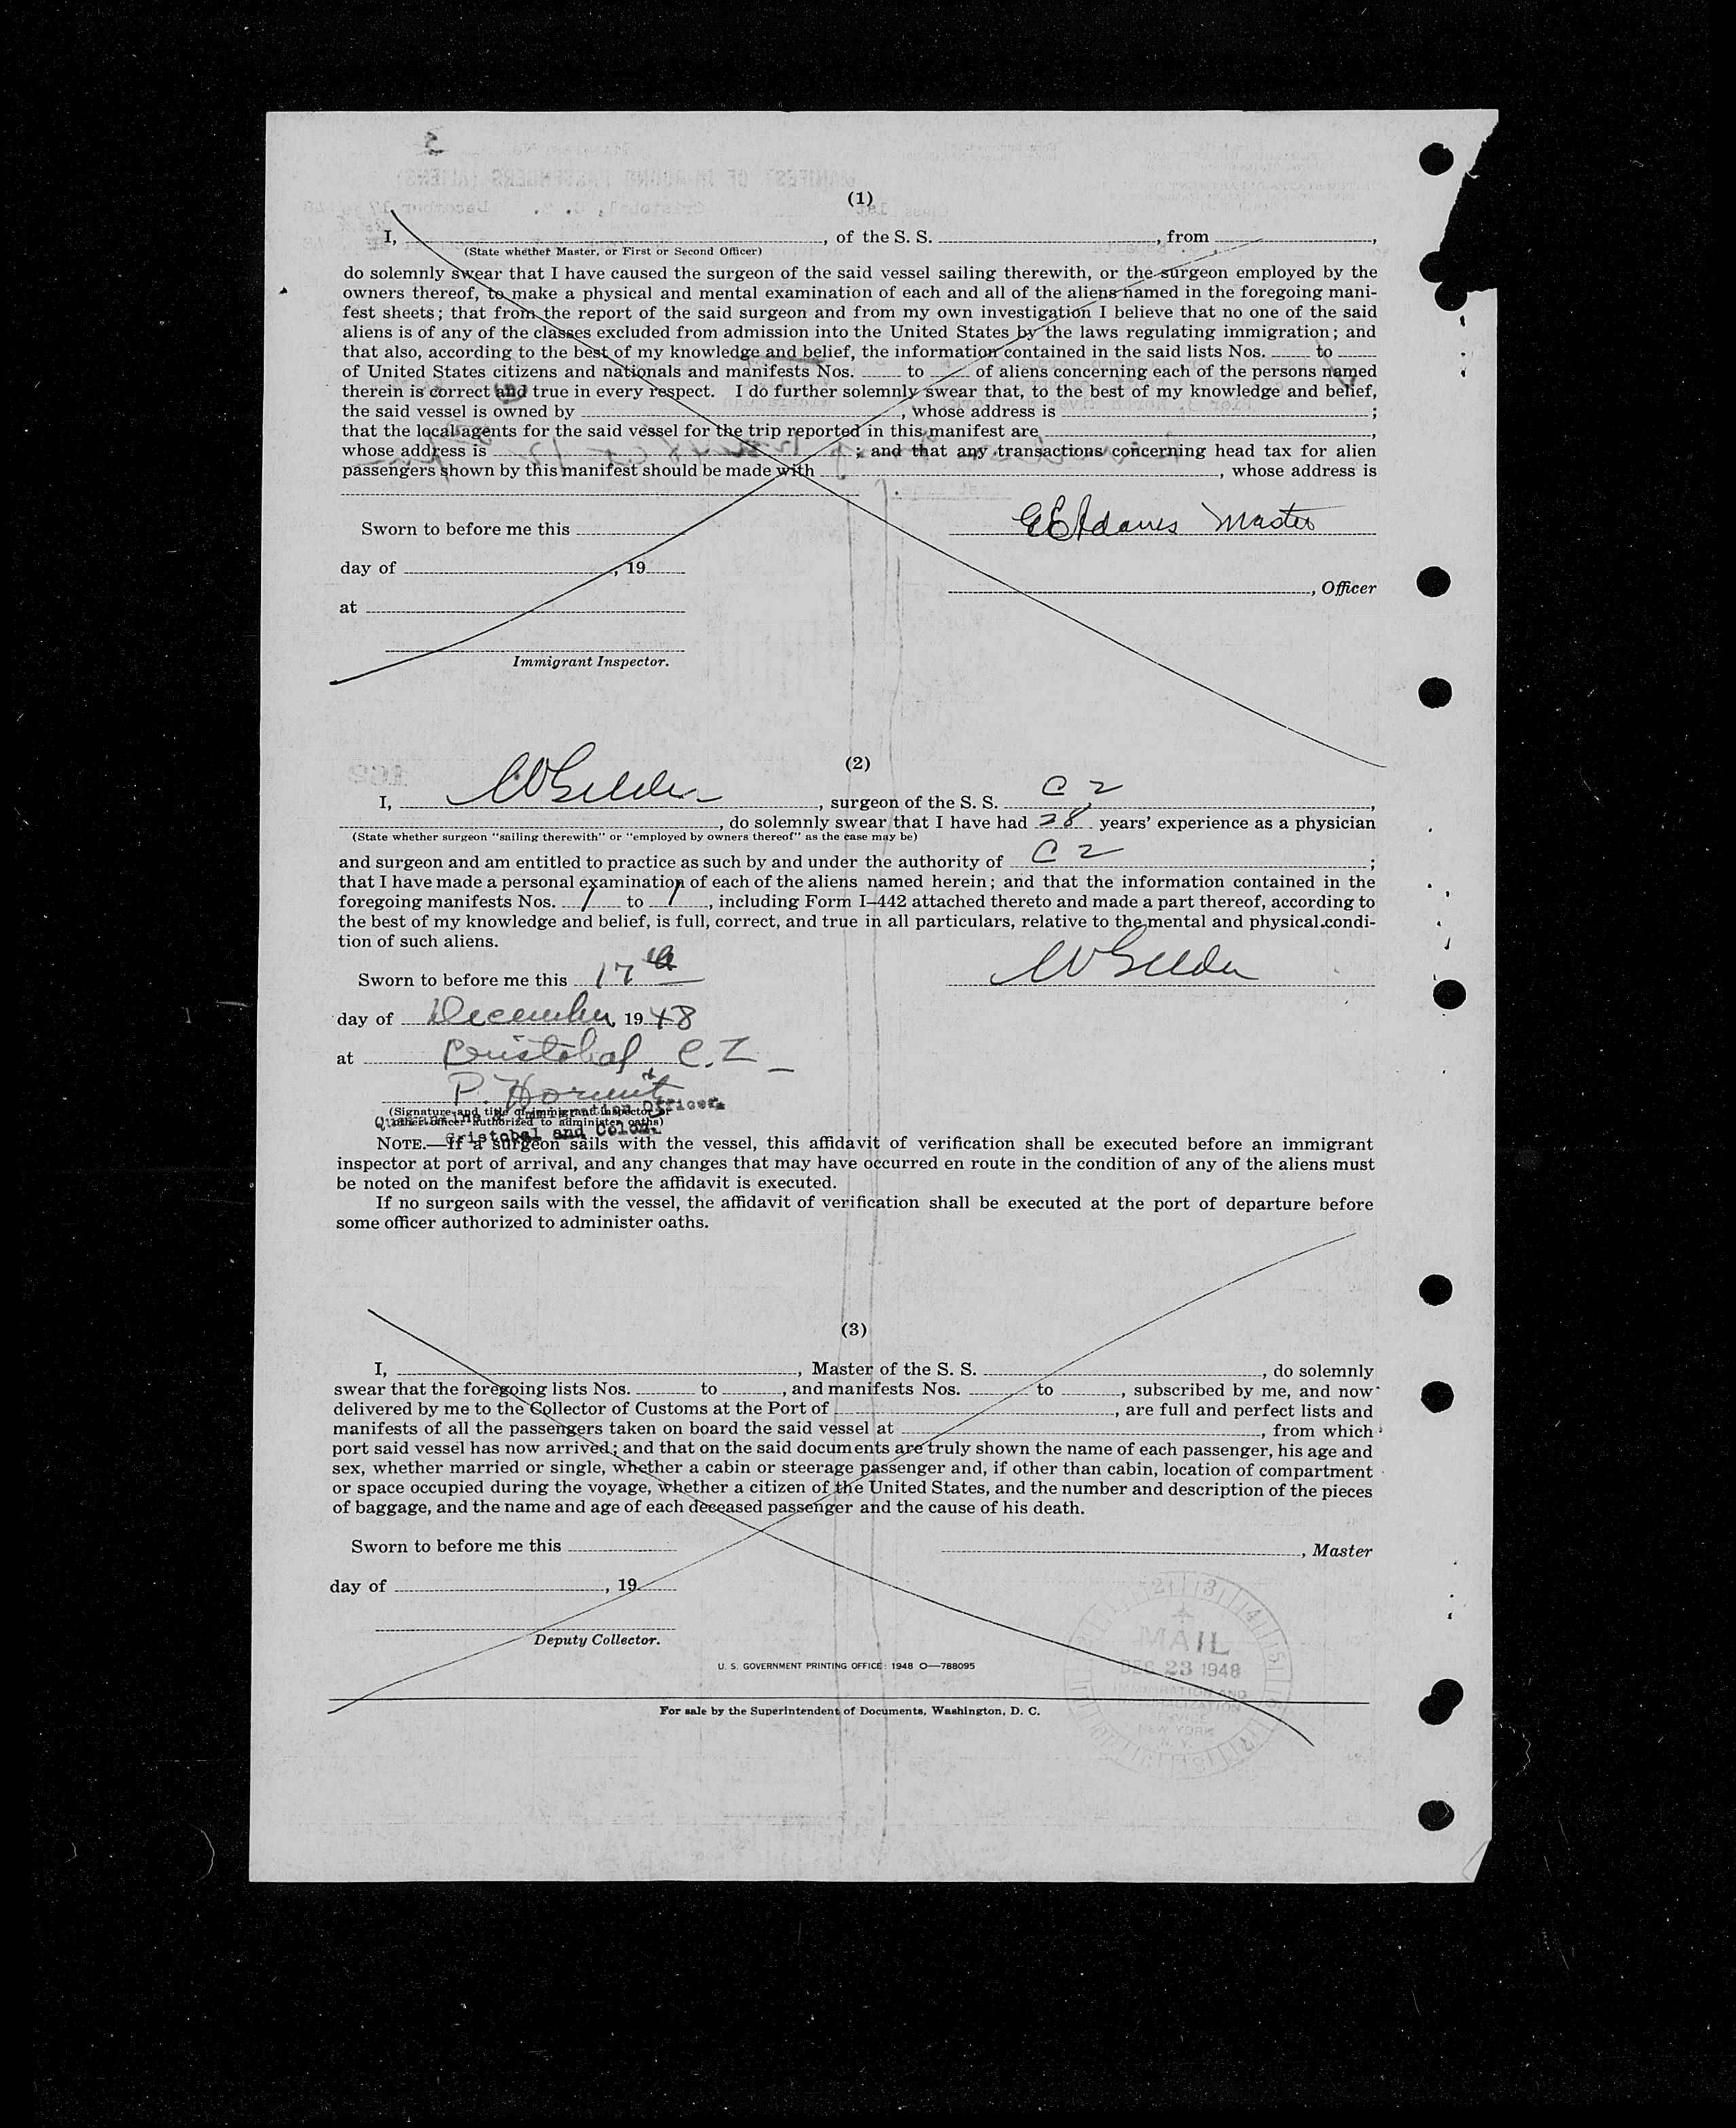 (1)
I, , of the S. S. , from ,
(State whether Master, or First or Second Officer)
do solemnly swear that I have caused the surgeon of the said vessel sailing therewith, or the surgeon employed by the
owners thereof, to make a physical and mental examination of each and all of the aliens named in the foregoing mani-
fest sheets; that from the report of the said surgeon and from my own investigation I believe that no one of the said
aliens is of any of the classes excluded from admission into the United States by the laws regulating immigration; and
that also, according to the best of my knowledge and belief, the information contained in the said lists Nos. to
of United States citizens and nationals and manifests Nos. to of aliens concerning each of the persons named
therein is correct and true in every respect. I do further solemnly swear that, to the best of my knowledge and belief,
the said vessel is owned by , whose address is ;
that the local agents for the said vessel for the trip reported in this manifest are ,
whose address is ; and that any transactions concerning head tax for alien
passengers shown by this manifest should be made with , whose address is
.
Sworn to before me this
GE Adams Master
day of , 19
, Officer
at
Immigrant Inspector.
(2)
I, , surgeon of the S. S. C Z ,
, do solemnly swear that I have had 28 years' experience as a physician
(State whether surgeon "sailing therewith" or "employed by owners thereof" as the case may be)
and surgeon and am entitled to practice as such by and under the authority of C Z ;
that I have made a personal examination of each of the aliens named herein; and that the information contained in the
foregoing manifests Nos. 1 to 1, including Form I-442 attached thereto and made a part thereof, according to
the best of my knowledge and belief, is full, correct, and true in all particulars, relative to the mental and physical condi-
tion of such aliens.
Sworn to before me this 17th
day of December, 1948
at Cristobal C.Z
P.
(Signature and title of immigrant inspector or
other officer authorized to administer oaths)
Quarantine & Immigration Officer.
Cristobal and Colon.
NOTE.—If a surgeon sails with the vessel, this affidavit of verification shall be executed before an immigrant
inspector at port of arrival, and any changes that may have occurred en route in the condition of any of the aliens must
be noted on the manifest before the affidavit is executed.
If no surgeon sails with the vessel, the affidavit of verification shall be executed at the port of departure before
some officer authorized to administer oaths.
(3)
I, , Master of the S. S. , do solemnly
swear that the foregoing lists Nos. to , and manifests Nos. to , subscribed by me, and now
delivered by me to the Collector of Customs at the Port of , are full and perfect lists and
manifests of all the passengers taken on board the said vessel at , from which
port said vessel has now arrived; and that on the said documents are truly shown the name of each passenger, his age and
sex, whether married or single, whether a cabin or steerage passenger and, if other than cabin, location of compartment
or space occupied during the voyage, whether a citizen of the United States, and the number and description of the pieces
of baggage, and the name and age of each deceased passenger and the cause of his death.
Sworn to before me this
, Master
day of , 19
Deputy Collector.
MAIL
DEC 23 1948
IMMIGRATION AND
NATURALIZATION
SERVICE
NEW YORK
N. Y.
U. S. GOVERNMENT PRINTING OFFICE: 1948 O—788095
For sale by the Superintendent of Documents, Washington, D. C.